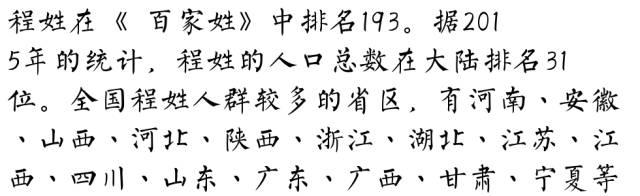 程姓在《 百家姓》中排名193。据201
5年的统计，程姓的人口总数在大陆排名31
位。全国程姓人群较多的省区，有河南、安徽
、山西、河北、陕西、浙江、湖北、江苏、江
西、四川、山东、广东、广西、甘肃、宁夏等